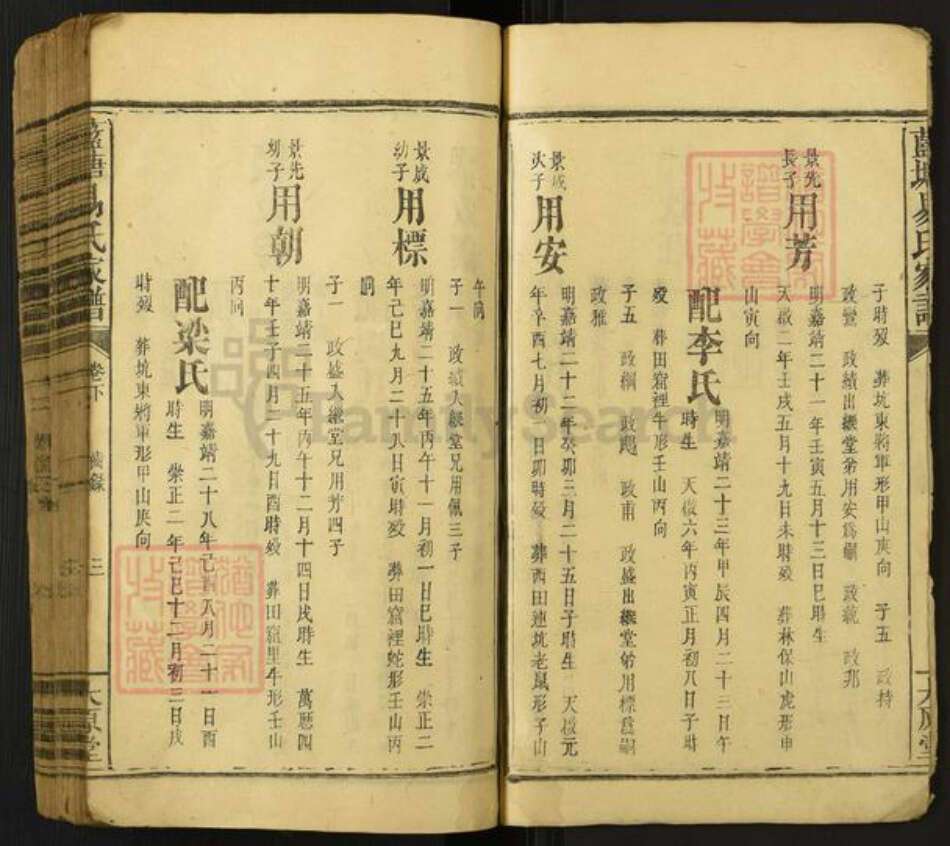 藍塘易氏家譜
太原堂
子時歿 葬坑東將軍形甲山庚向 子五 政持
政鸞 政績出繼堂弟用安為嗣 政統 政邦
景先長子 用芳
明嘉靖二十一年壬寅五月十三日巳時生
天啟二年壬戌五月十九日未時歿 葬林保山虎形申
山寅向
配李氏
明嘉靖二十三年甲辰四月二十三日午
時生 天啟六年丙寅正月初八日子時
歿 葬田窟裡牛形壬山丙向
子五 政綱 政鵾 政甫 政盛出繼堂弟用標為嗣
政雅
景成次子 用安
明嘉靖二十二年癸卯三月二十五日子時生 天啟元
年辛酉七月初 日卯時歿 葬西田連坑老鼠形子山
午向
子一 政績入繼堂兄用佩三子
景成幼子 用標
明嘉靖二十五年丙午十一月初一日巳時生 崇正二
年己巳九月二十八日寅時歿 葬田窟裡蛇形壬山丙
向
子一 政盛入繼堂兄用芳四子
景先幼子 用朝
明嘉靖二十五年丙午十二月十四日戌時生 萬厯四
十年壬子四月二十九日酉時歿 葬田窟里牛形壬山
丙向
配梁氏
明嘉靖二十八年己酉八月二十一日酉
時生 崇正二年己巳十二月初三日戌
時歿 葬坑東將軍形甲山庚向
藍塘易氏家譜
卷下
三
太原堂
譜學會收藏
FamilySearch